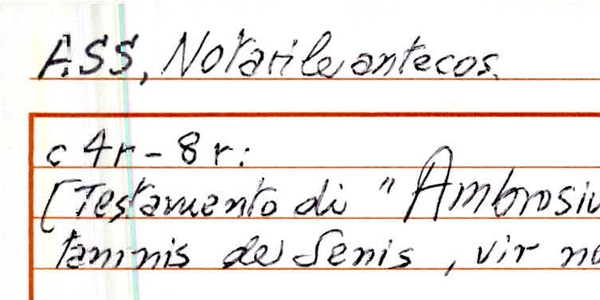 ASS, Notarile antecos.
c 4r - 8r:
[Testamento di "Ambrosiu
taminis de Senis, vir no